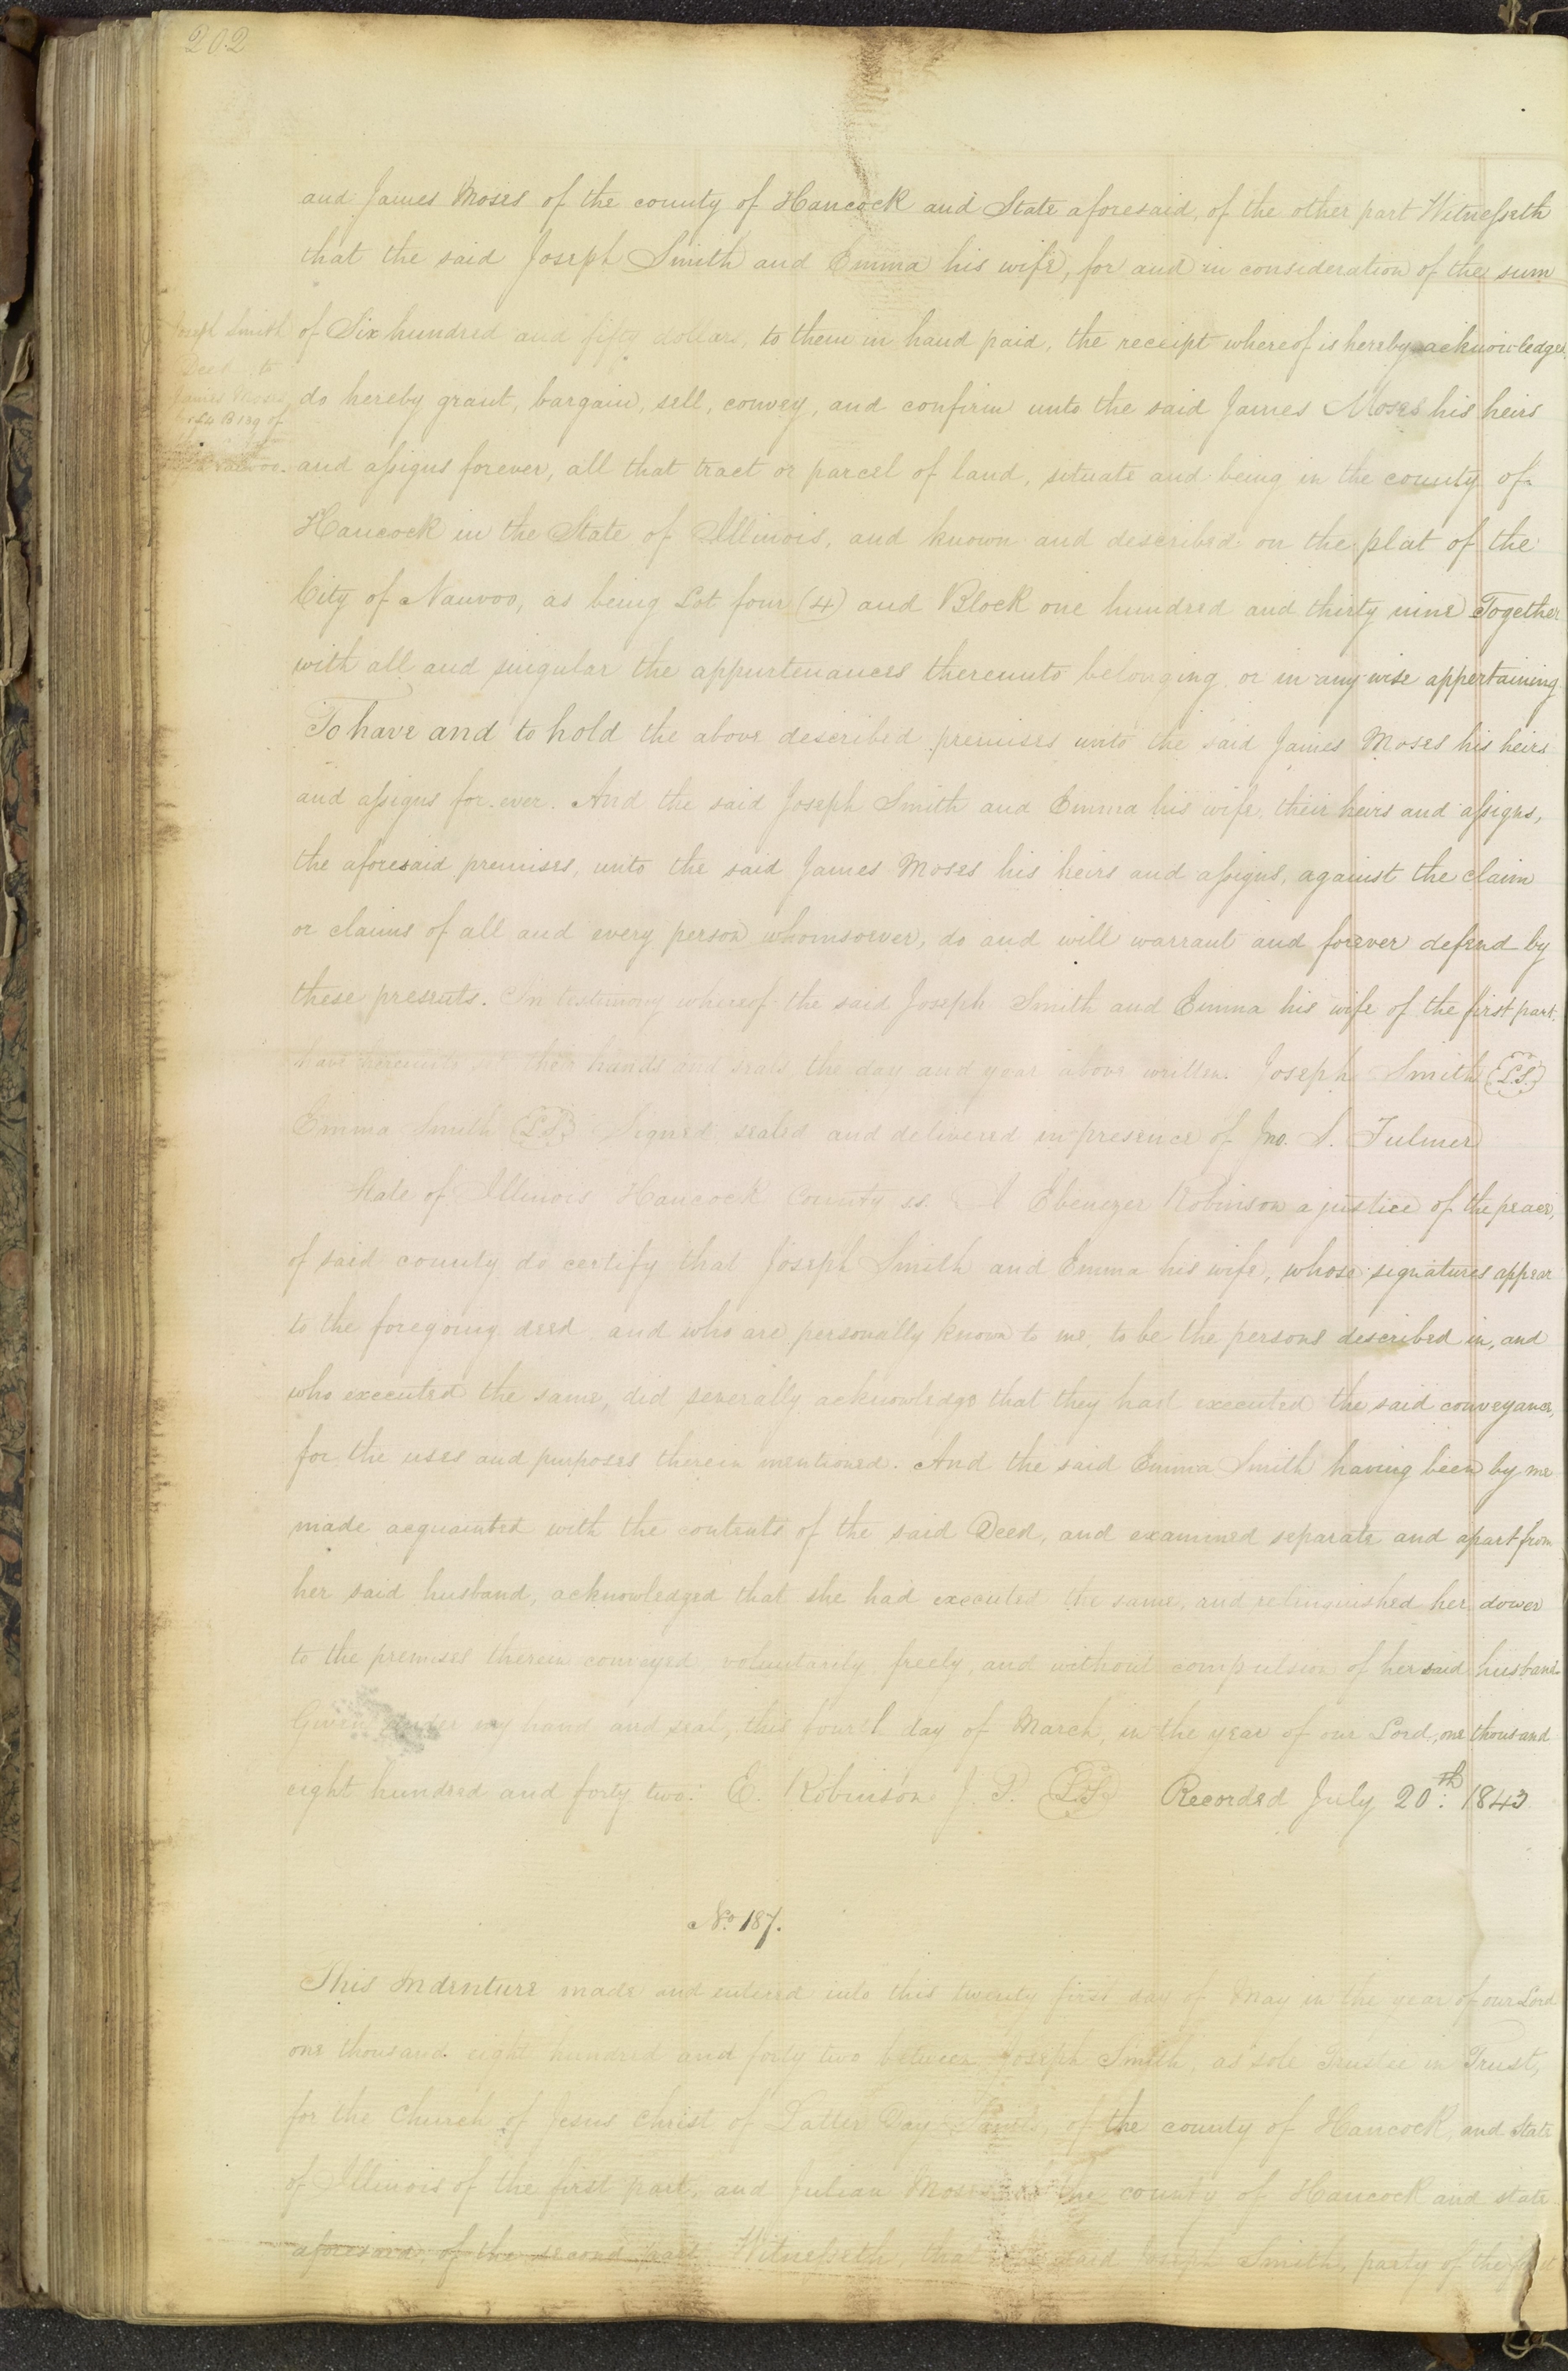 202
and James Moses of the county of Hancock and State aforesaid, of the other part Witnesseth
that the said Joseph Smith and Emma his wife, for and in consideration of the sum
Joseph Smith
Deed to
James Moses
Lot 4 B 139 of
Nauvoo.
of Six hundred and fifty dollars, to them in hand paid, the receipt whereof is hereby acknowledged
do hereby grant, bargain, sell, convey, and confirm unto the said James Moses his heirs
and assigns forever, all that tract or parcel of land, situate and being in the county of
Hancock in the State of Illinois, and known and described on the plat of the
City of Nauvoo, as being Lot four (4) and Block one hundred and thirty nine Together
with all and singular the appurtenances thereunto belonging or in any wise appertaining
To have and to hold the above described premises unto the said James Moses his heirs
and assigns for ever. And the said Joseph Smith and Emma his wife, their heirs and assigns,
the aforesaid premises, unto the said James Moses his heirs and assigns, against the claim
or claims of all and every person whomsoever, do and will warrant and forever defend by
these presents. In testimony whereof the said Joseph Smith and Emma his wife of the first part.
have hereunto set their hands and seals the day and year above written. Joseph Smith L.S.
Emma Smith L.S. Signed, sealed and delivered in presence of Jno. S. Fulmer
State of Illinois Hancock County ss. I Ebenezer Robinson a justice of the peace,
of said county do certify that Joseph Smith and Emma his wife, whose signatures appear
to the foregoing deed, and who are personally known to me, to be the persons described in, and
who executed the same, did severally acknowledge that they had executed the said conveyance,
for the uses and purposes therein mentioned. And the said Emma Smith having been by me
made acquainted with the contents of the said Deed, and examined separate and apart from
her said husband, acknowledged that she had executed the same, and relinquished her dower
to the premises therein conveyed voluntarily freely, and without compulsion of her said husband
Given under my hand and seal, this fourth day of March, in the year of our Lord, one thousand
eight hundred and forty two. E Robinson J. P. L.S. Recorded July 20th 1843
No. 187.
This Indenture made and entered into this twenty first day of May in the year of our Lord
one thousand eight hundred and forty two between Joseph Smith, as sole Trustee in Trust,
for the Church of Jesus Christ of Latter Day Saints, of the county of Hancock, and State
of Illinois of the first part, and Julian Moses of the county of Hancock and state
aforesaid, of the second part Witnesseth, that the said Joseph Smith, party of the first